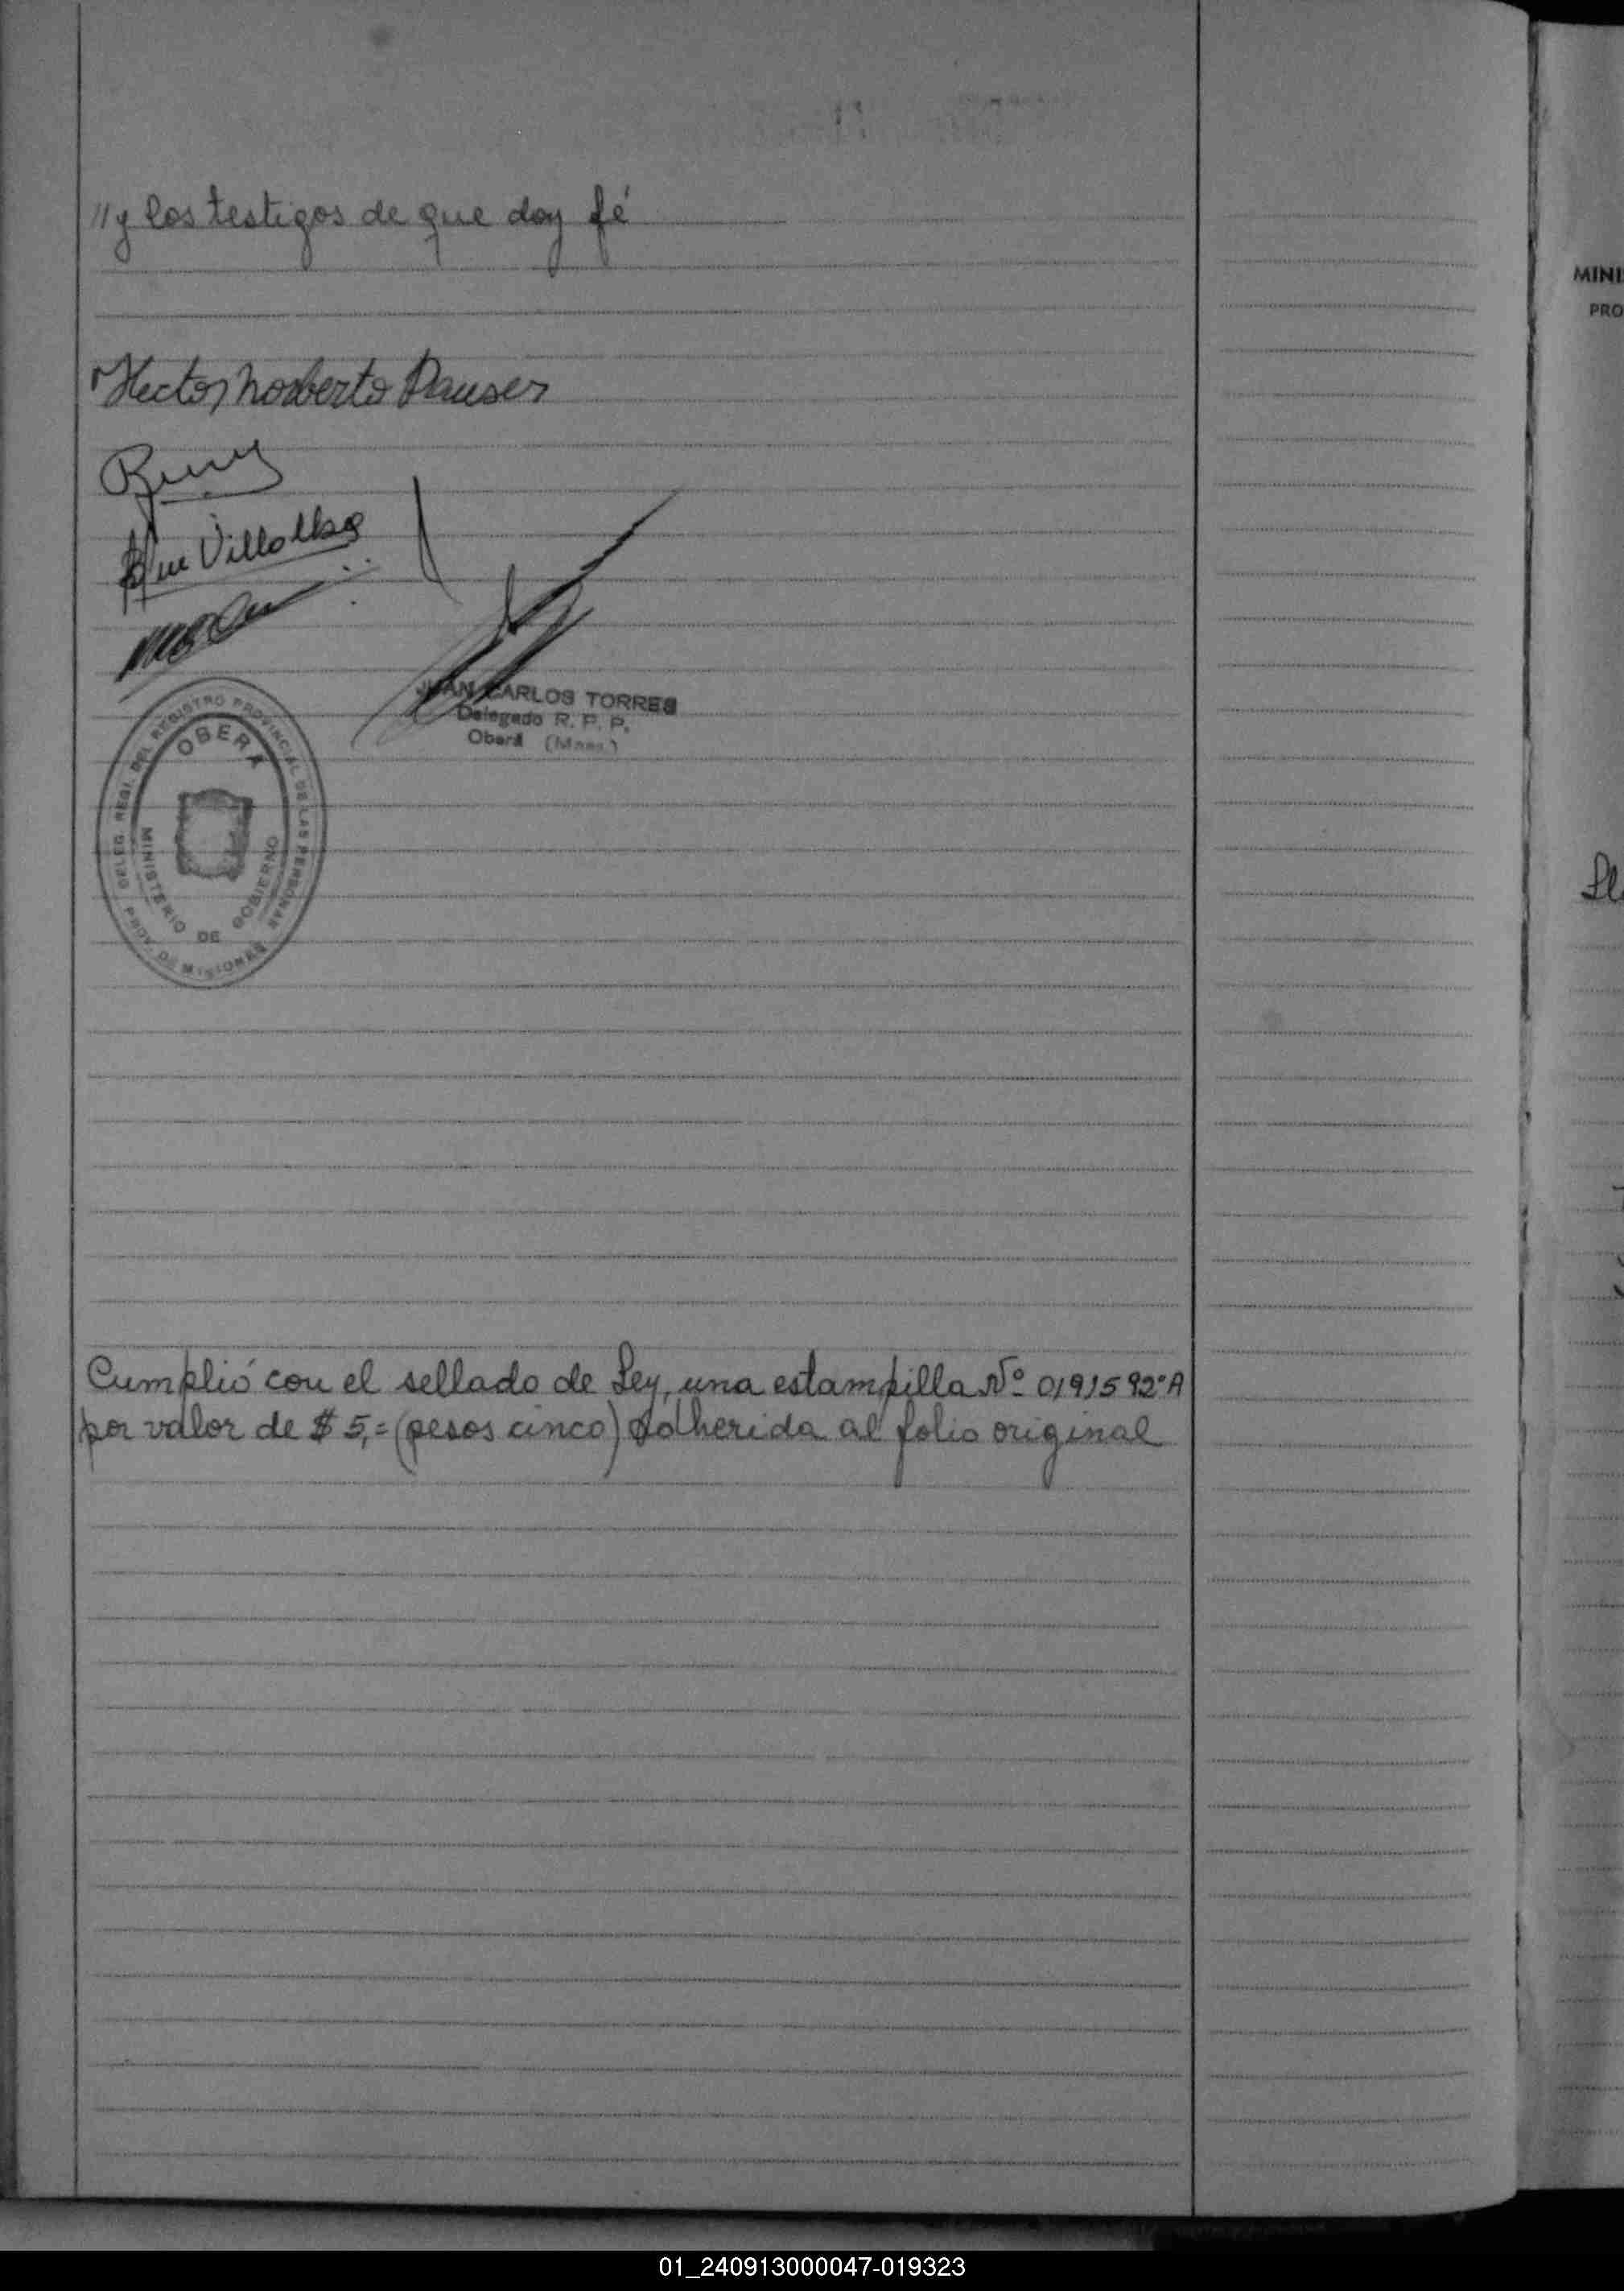 "y los testigos de que doy fé
Hector Norberto Dauser
Villalba
JUAN CARLOS TORRES
Delegado R. P. P.
Oberá (Mnes.)
DELEG. REGI. DEL REGISTRO PROVINCIAL DE LAS PERSONAS
OBERA
MINISTERIO DE GOBIERNO
PROV. DE MISIONES
Cumplió con el sellado de Ley, una estampilla Nº 0191592"A
por valor de $ 5,= (pesos cinco) adherida al folio original
MINI
PRO
01_240913000047-019323